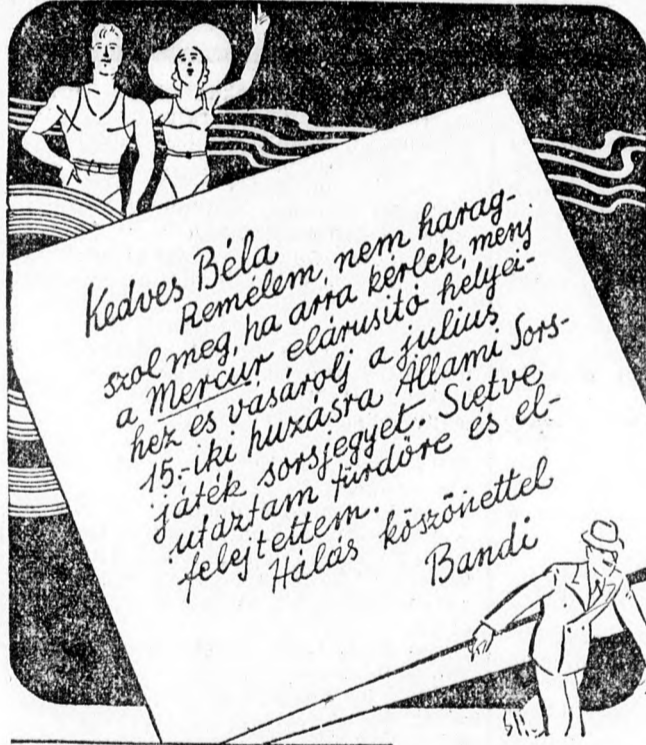 Kedves Béla
Remélem, nem harag-
szol meg, ha arra kérlek, menj
a Mercur elárusitó helyei-
hez és vásárolj a julius
15.-iki huzásra Állami Sors-
játék sorsjegyet. Sietve
utaztam fürdőre és el-
felejtettem.
Hálás köszönettel
Bandi